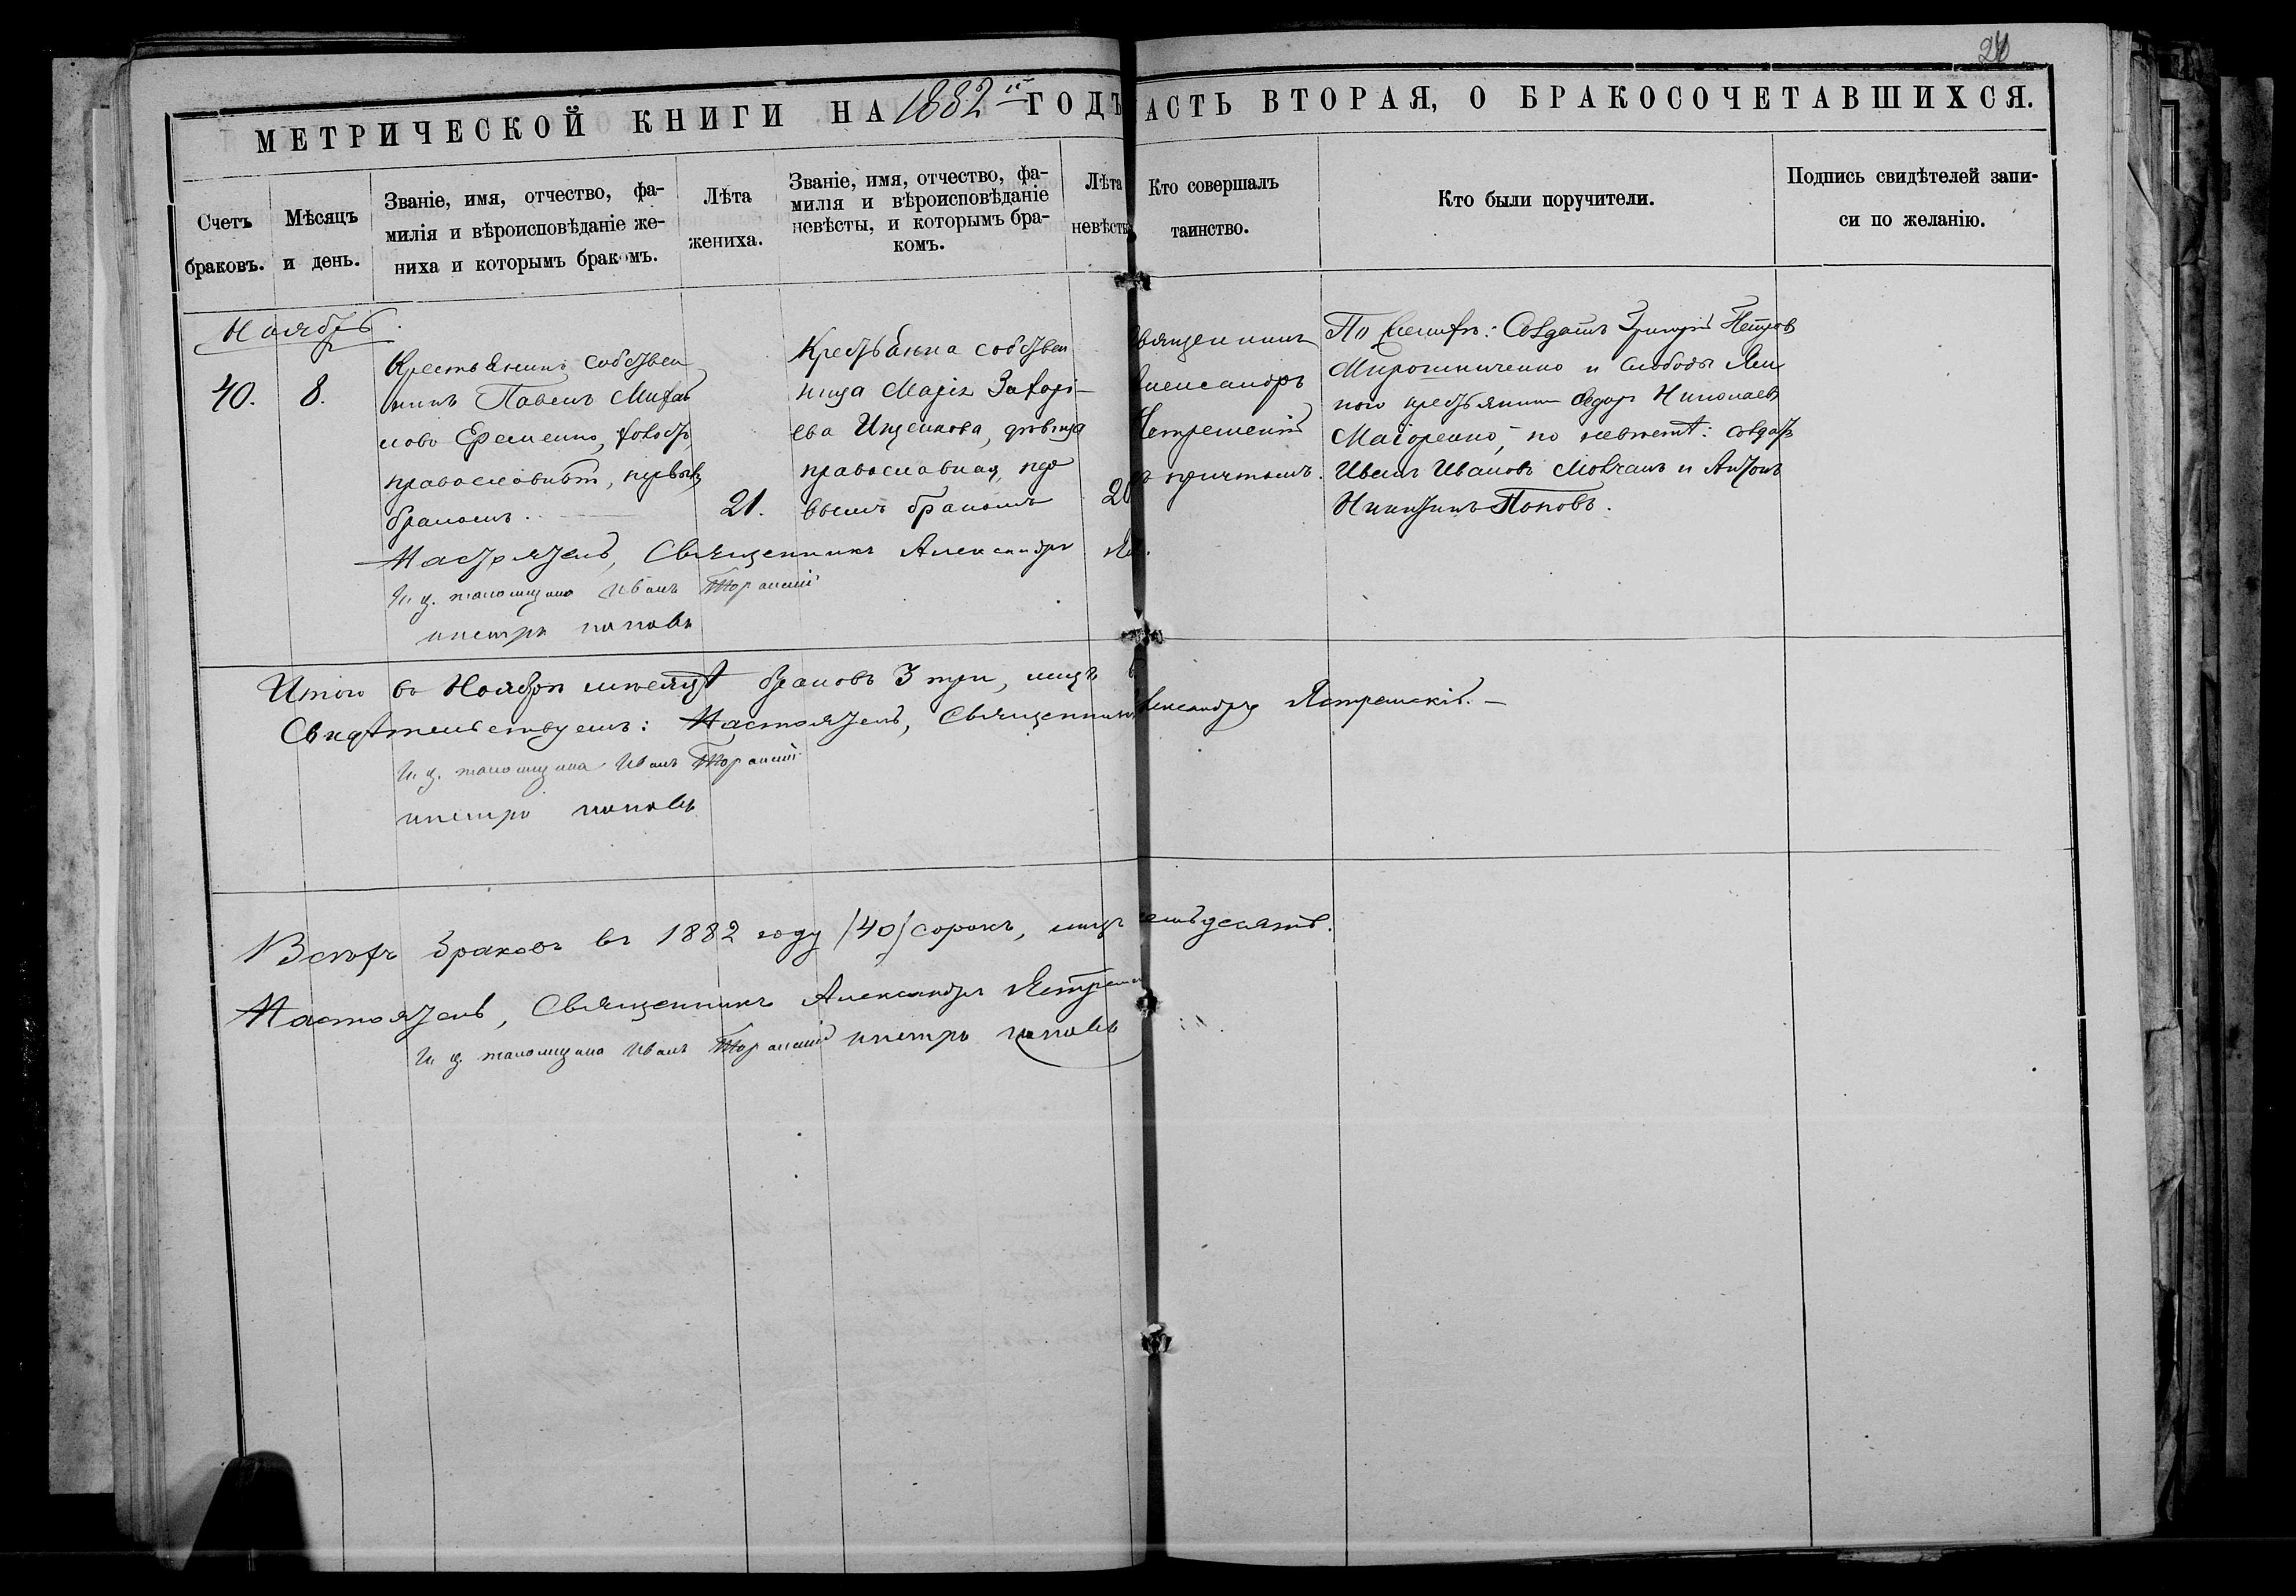 20
МЕТРИЧЕСКОЙ КНИГИ НА 1882й ГОДЪ
АСТЬ ВТОРАЯ, О БРАКОСОЧЕТАВШИХСЯ.
Счетъ браковъ.
Мѣсяцъ и день.
Званіе, имя, отчество, фа-
милія и вѣроисповѣданіе же-
ниха и которымъ бракомъ.
Лѣта жениха.
Званіе, имя, отчество, фа-
милія и вѣроисповѣданіе
невѣсты, и которымъ бра-
комъ.
Лѣта невѣсты
Кто совершалъ
таинство.
Кто были поручители.
Подпись свидѣтелей запи-
си по желанію.
Ноябрь.
40.
8.
Крестьянинъ собствен
никъ Павелъ Михаи
лов Еременко, холостъ
православный, первымъ
бракомъ.
21.
Крестьянка собствен
ница Марія Захарі-
ева Ищенкова, дѣвица
православная, пер
вымъ бракомъ
20
священникъ
Александръ
Ястремскій
съ причтомъ.
По женихѣ: Солдатъ Григорій Петров
Мирошниченко и слободы
крестьянинъ Федоръ Николаевъ
по невѣстѣ: солдатъ
Иванъ Ивановъ Мовчанъ и Антонъ
Никитинъ Поповъ.
Настоятель, Священникъ Александръ Яс.
И. д. псаломщика Иванъ
Петръ Поповъ
Итого въ Ноябрѣ мѣсяцѣ браковъ 3 три, лицъ
Свидѣтельствуемъ: Настоятель, Священникъ Александръ Ястремскій. —
И. д. псаломщика Иванъ
Петръ Поповъ
Всѣхъ браковъ въ 1882 году /40/ сорокъ, лицъ емьдесятъ.
Настоятель, Священникъ Александръ Ястремск
И д. псаломщика Иванъ Петръ Поповъ